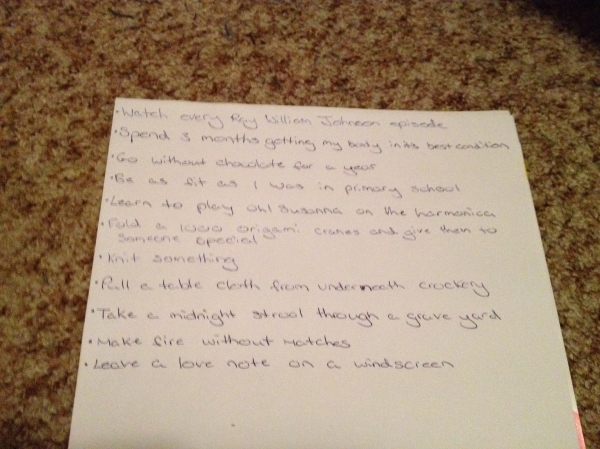 • Watch every Ray William Johnson episode
• Spend 3 months getting my body in its best condition
• Go without chocolate for a year
• Be as fit as I was in primary school
• Learn to play Oh! Susanna on the harmonica
• Fold a 1000 origami cranes and give them to
someone special
• Knit something
• Pull a table cloth from underneath crockery
• Take a midnight strool through a grave yard
• Make fire without matches
• Leave a love note on a windscreen